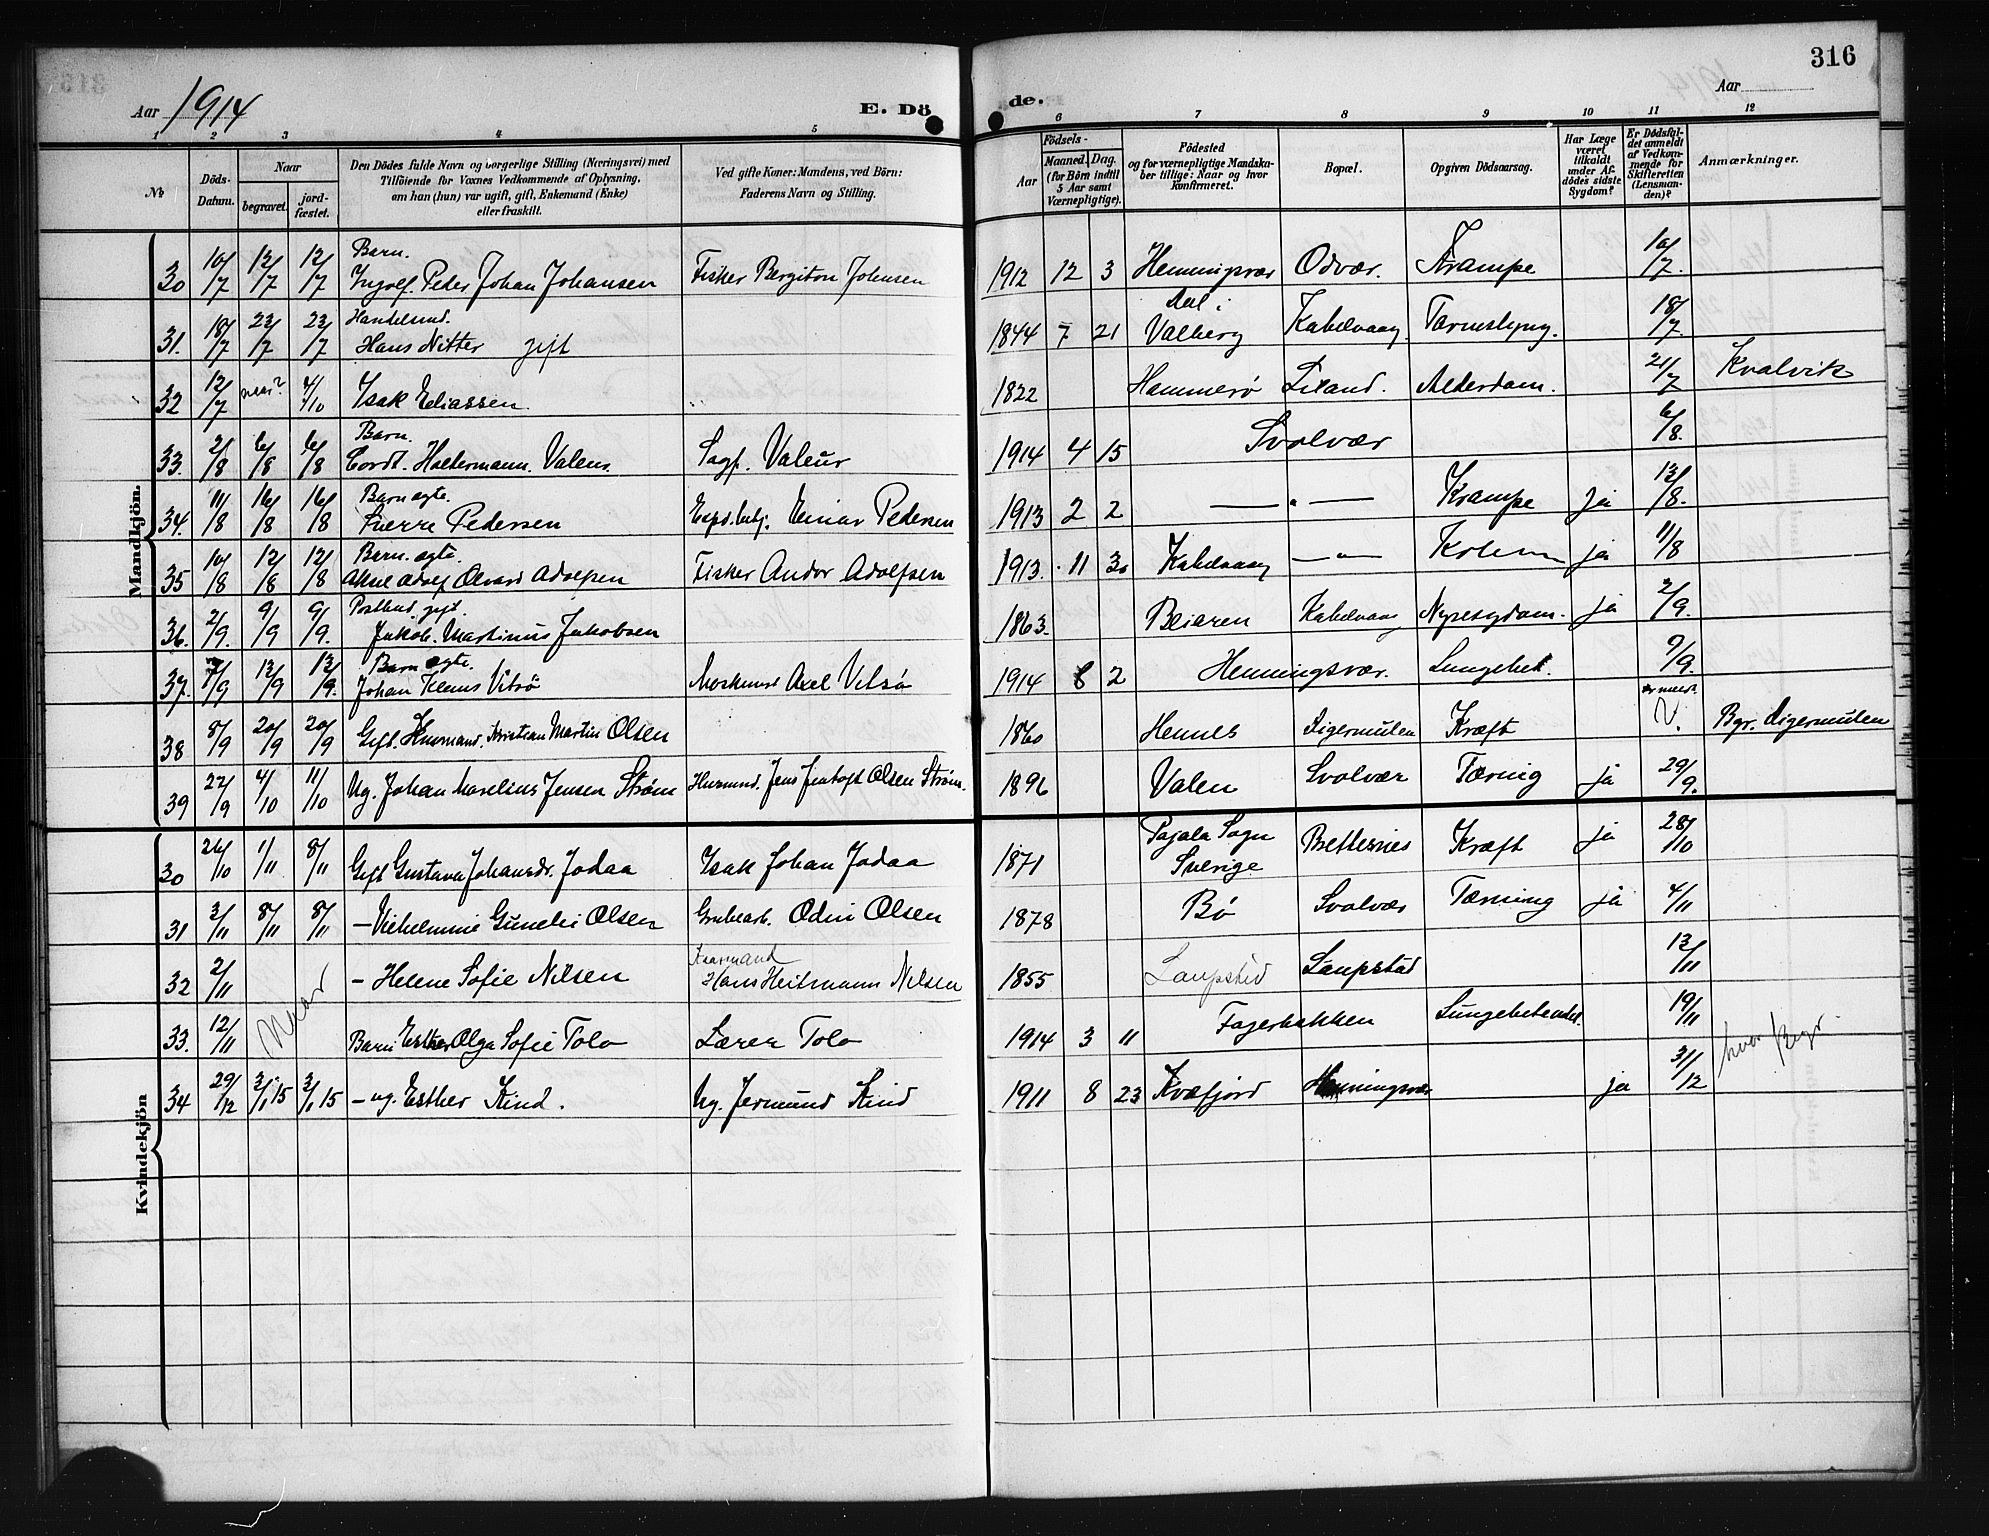 316
Aar 1914
E. Dö
de.
Aar
1 2 3 4 5 6 7 8 9 10 11 12
No
Döds-Datum.
Naar
begravet.
jord-fæstet.
Den Dödes fulde Navn og borgerlige Stilling (Næringsvei) med
Tilföiende for Voxnes Vedkommende af Oplysning,
om han (hun) var ugift, gift, Enkemand (Enke)
eller fraskilt.
Ved gifte Koner: Mandens, ved Börn:
Faderens Navn og Stilling.
Födsels-
Aar
Maaned. Dag.
(for Börn indtil
5 Aar samt
Værnepligtige).
Födested
og for værnepligtige Mandska-
ber tillige: Naar og hvor
konfirmeret.
Bopæl.
Opgiven Dödsaarsag.
Har Læge
været
tilkaldt
under Af-
dödes sidste
Sygdom?
Er Dödsfal-
det anmeldt
af Vedkom-
mende for
Skifteretten
(Lensman-
den)?
Anmærkninger.
Mandkjön.
30 10/7 12/7 12/7 Barn. Ingolf Peder Johan Johansen Fisker Bergiton Johnsen 1912 12 3 Henningsvær Odvær. Krampe 10/7.
31. 18/7 23/7 23/7 Handelsmd. Hans Nitter gift 1844 7 21 Aal i Valberg Kabelvaag Tarmslyng. 18/7.
32 12/7 naar? 4/10 Isak Eliassen. 1822 Hammerø Liland. Alderdom. 21/7 Kvalvik
33. 2/8 6/8 6/8 Barn. Cordt. Holtermann. Valeur. Sagf. Valeur 1914 4 15 Svolvær 6/8.
34. 11/8 16/8 16/8 Barn ægte. Sverre Pedersen Exp.betj. Einar Pedersen 1913 2 2 — " — Krampe ja 13/8.
35 10/8 12/8 12/8 Barn. ægte. Aksel Adolf Edvard Adolfsen Fisker Andor Adolfsen 1913. 11 30 Kabelvaag — " — ja 11/8
36. 2/9. 9/9 9/9. Postbud gift. Jakob. Martinus Jakobsen 1863. Beiaren Kabelvaag Nyresygdom. ja 2/9.
37. 7/9 13/9 13/9. Barn ægte. Johan Klaus Vitsø Axel Vitsø 1914 8 2 Henningsvær. Lungebet. 9/9.
38 8/9 20/9 20/9 Gift. Husmand. Kristian Martin Olsen 1860 Hennes Digermulen Kræft Bgr. Digermulen
39 22/9 4/10 11/10 Ug. Johan Marelius Jensen Strøm Husmand. Jens Jentoft Olsen Strøm. 1896 Valen Svolvær Tæring ja 29/9.
Kvindekjön
30 26/10 1/11 8/11 Gift Gustava Johansdr. Jodaa Isak Johan Jodaa 1871 Pajala Sogn Sverige Brettesnes Kræft ja 28/10
31 3/11 8/11 8/11 – Vilhelmine Gunelie Olsen Grubearb. Odin Olsen 1878 Bø Svolvær Tærning ja 4/11
32 2/11 – Helene Sofie Nilsen Kaarmand Hans Heitmann Nilsen 1855 Laupstad Laupstad 13/11
33. 12/11 Naar Barn Esther Olga Sofie Tolo Lærer Tolo 1914 3 11 Fagerbakken Lungebetændel. 19/11 hvor Begr.
34 29/12 3/1 15 3/1 15 – ug. Esther Kind. Ug. Jermund Kind 1911 8 23 Kvæfjord Henningsvær ja 31/12